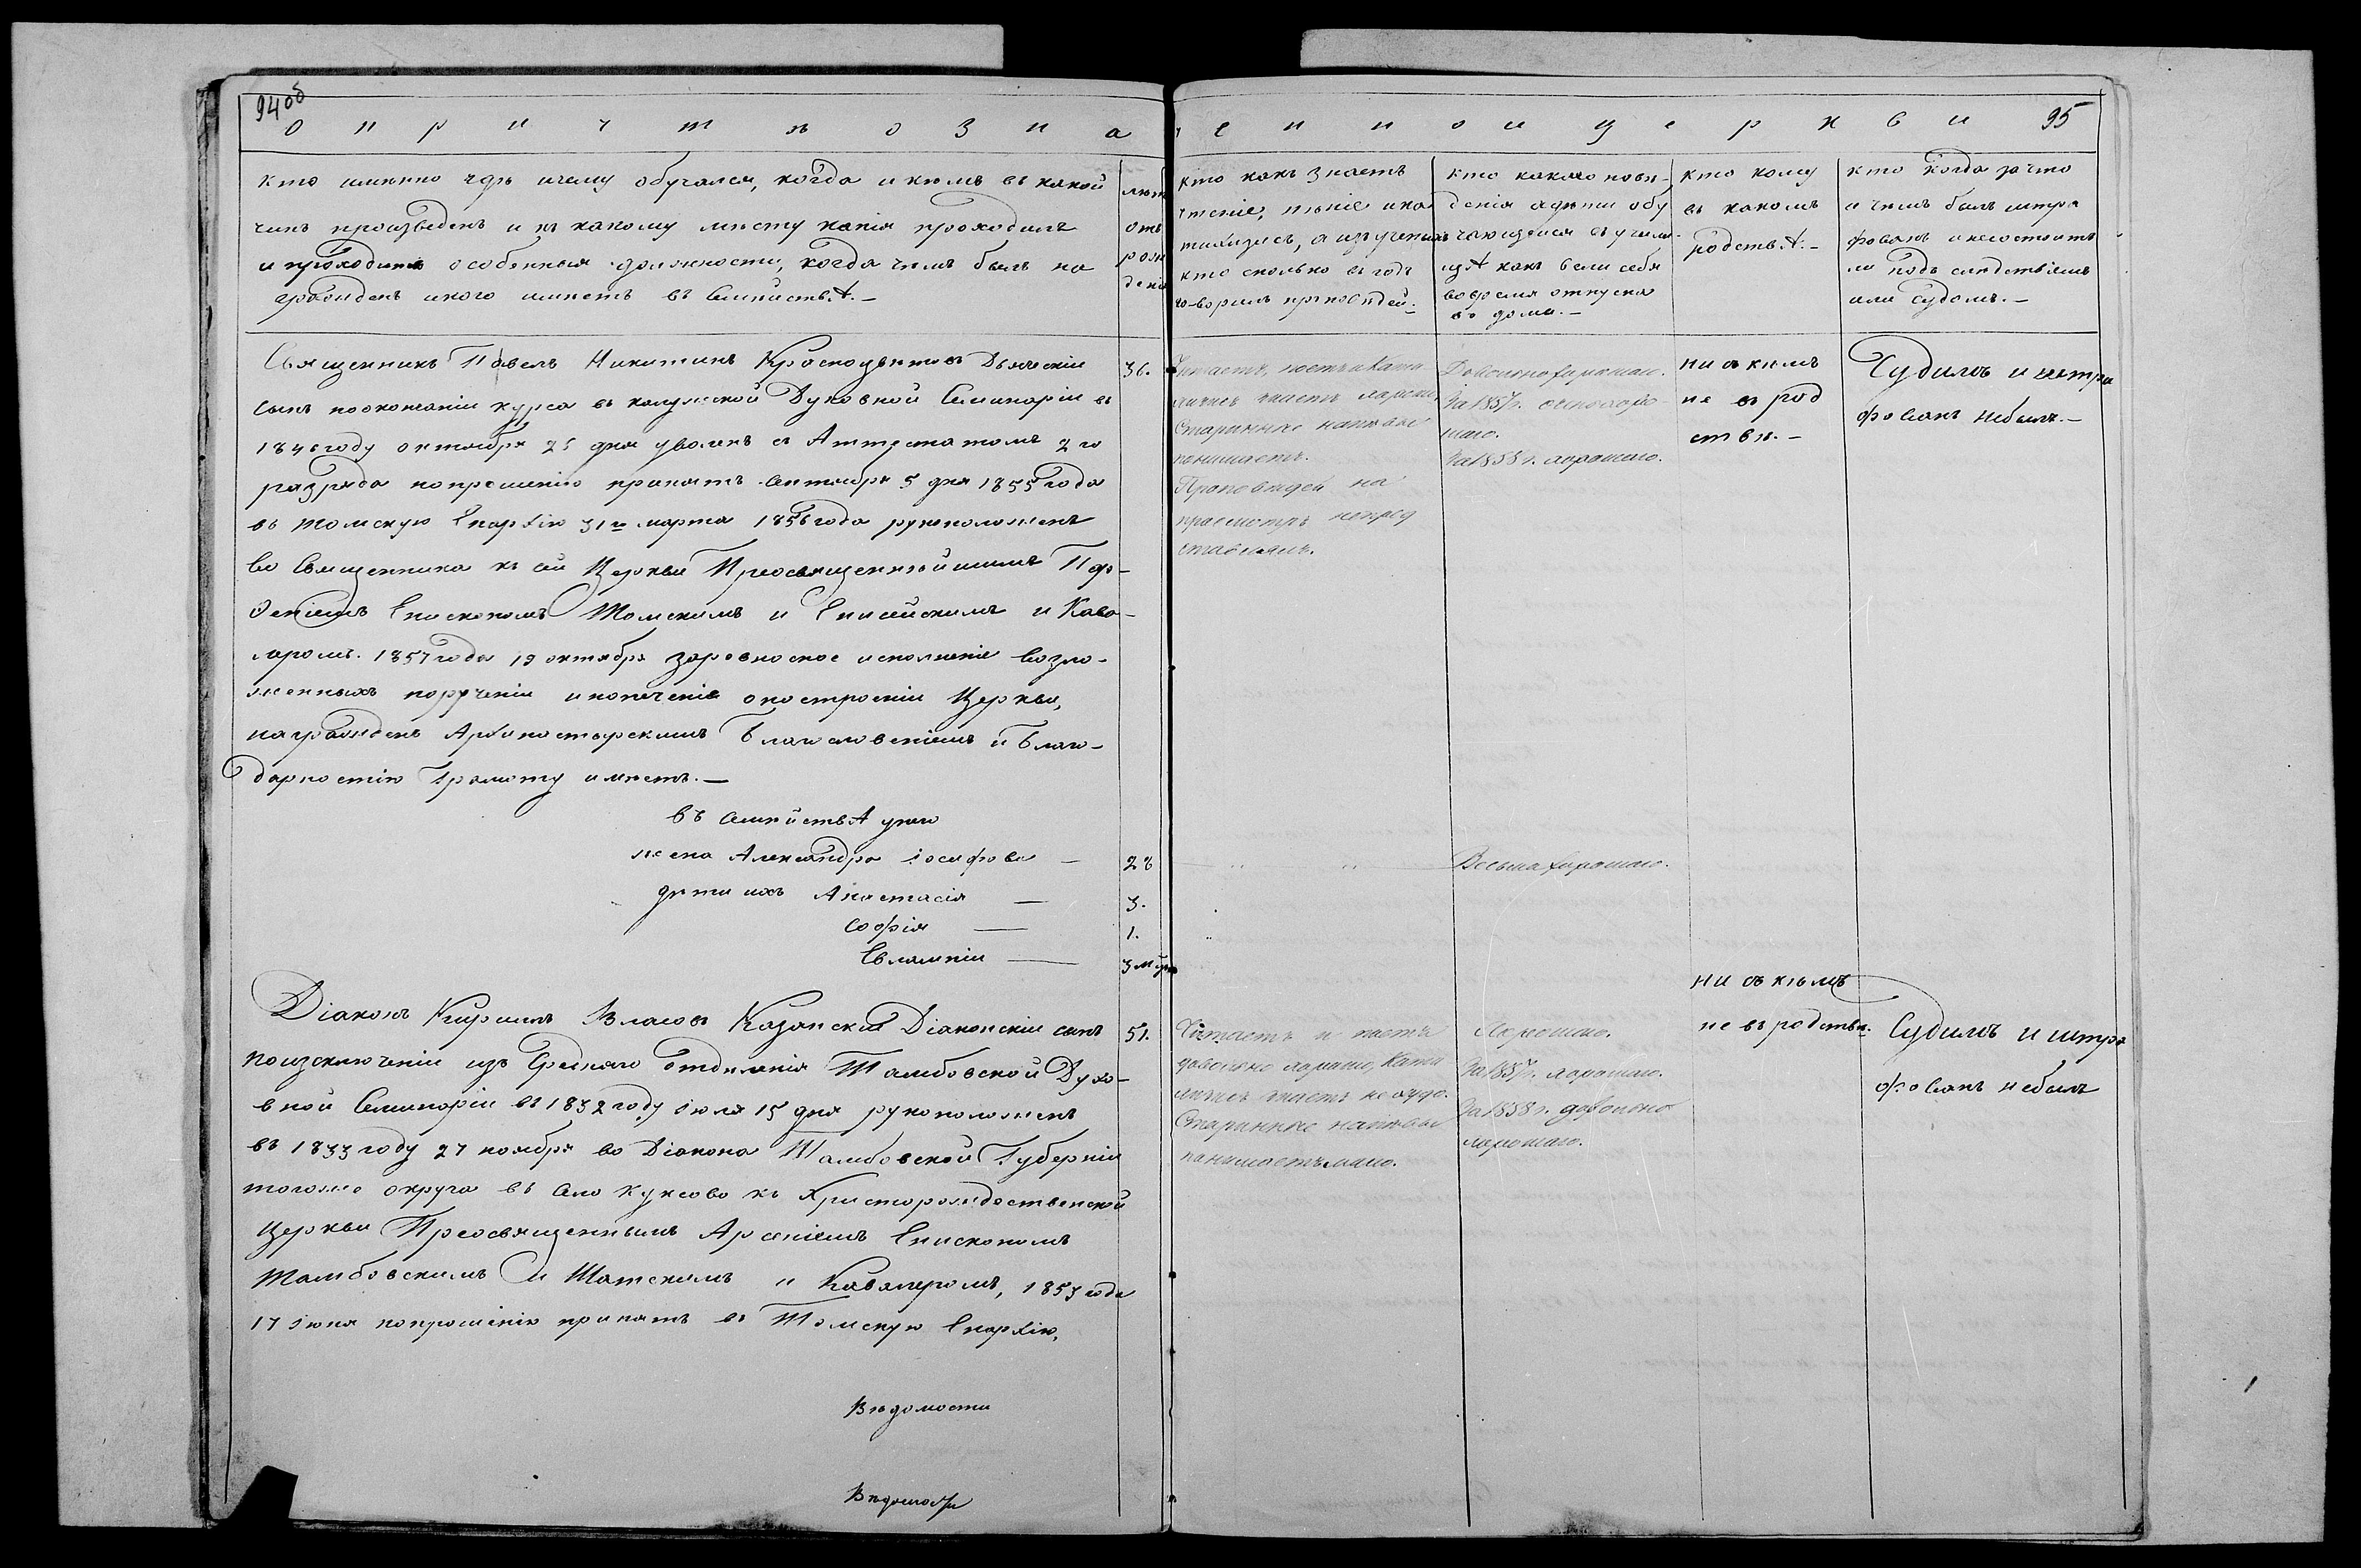 94 об
О причтѣ означенной церкви
95
Кто именно гдѣ и чему обучался, когда и кѣмъ въ какой
чинъ произведенъ и къ какому мѣсту какія проходилъ
и проходитъ особенныя должности, когда чѣмъ былъ на
гражденъ и кого имѣетъ въ семействѣ. —
лѣт
отъ
рож
денія
кто какъ знаетъ
чтеніе, пѣніе и ка
тихизисъ, а изъ ученыхъ
кто сколько въ годъ
говорилъ проповѣдей. —
Кто какаго пове-
денія а дѣти обу
чающіеся въ учили
щѣ какъ вели себя
во время отпуска
въ дома. —
Кто кому
въ какомъ
родствѣ. —
кто когда за что
и чѣмъ былъ штра
фованъ и не состоитъ
ли подъ слѣдствіемъ
или судомъ. —
Священникъ Павелъ Никитинъ Красноцвѣтовъ Дьяческій
сынъ по окончаніи курса въ калужской Духовной Семинаріи въ
1846 году октября 25 дня уволенъ съ Аттестатомъ 2го
разряда по прошенію принятъ Сентября 5 дня 1855 года
въ Томскую Епархію 31го марта 1856 года рукоположенъ
во Священника къ сей Церкви Преосвященнѣйшимъ Пар-
ѳеніемъ Епископомъ Томскимъ и Енисейскимъ и Кава-
леромъ. 1857 года 19 октября за ревностное исполненіе возло-
женныхъ порученіи и попеченіе о построеніи Церкви,
награжденъ Архипастырскимъ Благословеніемъ и Благо-
дарностію Грамоту имѣетъ. —
36.
Читаетъ, поетъ и Кати
хизисъ знаетъ хорошо,
Старинные напѣвы
понимаетъ.
Проповѣдей на
просмотръ непред
ставлялъ.
Довольно хорошаго.
За 1857 г. очень хоро
шаго.
За 1858 г. хорошаго.
ни съ кѣмъ
не въ род
ствѣ. —
Судимъ и штра
фованъ небылъ. —
Въ семействѣ у него
жена Александра Іосифова — 28 Весьма хорошаго.
дѣти ихъ Анастасія — 3.
Софія — 1.
Евлампія — 3 м
Діаконъ Кирилъ Власовъ Казанскій Діаконскій сынъ
по изключеніи изъ Средняго отдѣленія Тамбовской Духо-
вной Семинаріи въ 1832 году Іюля 15 дня рукоположенъ
въ 1833 году 27 ноября во Діакона Тамбовской Губерніи
тогоже округа въ село Куксово къ Христорождественской
Церкви Преосвященнымъ Арсеніемъ Епископомъ
Тамбовскимъ и Шатскимъ и Кавалеромъ, 1853 года
17 Іюня по прошенію принятъ въ Томскую Епархію,
51.
Читаетъ и поетъ
довольно хорошо, Кати
хизисъ знаетъ не худо.
Старинные напѣвы
понимаетъ мало.
Хорошаго.
За 1857 г. хорошаго.
За 1858 г. довольно
хорошаго.
ни съ кѣмъ
не въ родствѣ.
Судимъ и штра
фованъ небылъ
Вѣдомости
Вѣдомости